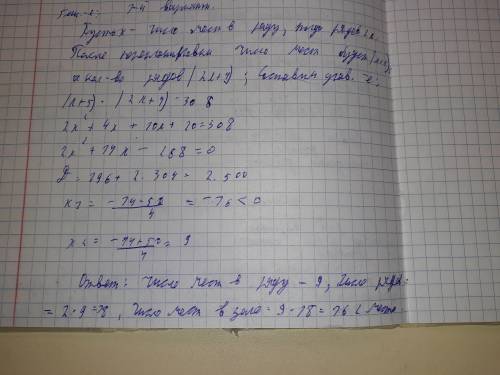 1-й вариант.
Пусть x - число мест в ряду, тогда рядов 2x.
После число мест будет (x+5),
а кол-во рядов (2x+4); Составим урав-е:
(x+5) · (2x+4) = 308
2x² + 4x + 10x + 20 = 308
2x² + 14x - 288 = 0
D = 196 + 2.304 = 2.500
x1 = -14-50/4 = -16 < 0
x2 = -14+50/4 = 9
Ответ: число мест в ряду - 9, число рядов
= 2·9=18, число мест в зале = 9·18 = 162 места